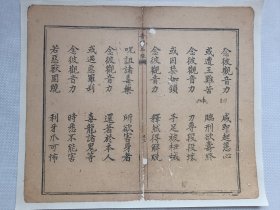 念彼觀音力 咸即起慈心
或遭王難苦 臨刑欲壽終
念彼觀音力 刀尋段段壞
或囚禁枷鎖 手足被杻械
念彼觀音力 釋然得解脫
呪詛諸毒藥 所欲害身者
念彼觀音力 還著於本人
或遇惡羅剎 毒龍諸鬼等
念彼觀音力 時悉不能害
若惡獸圍繞 利牙爪可怖